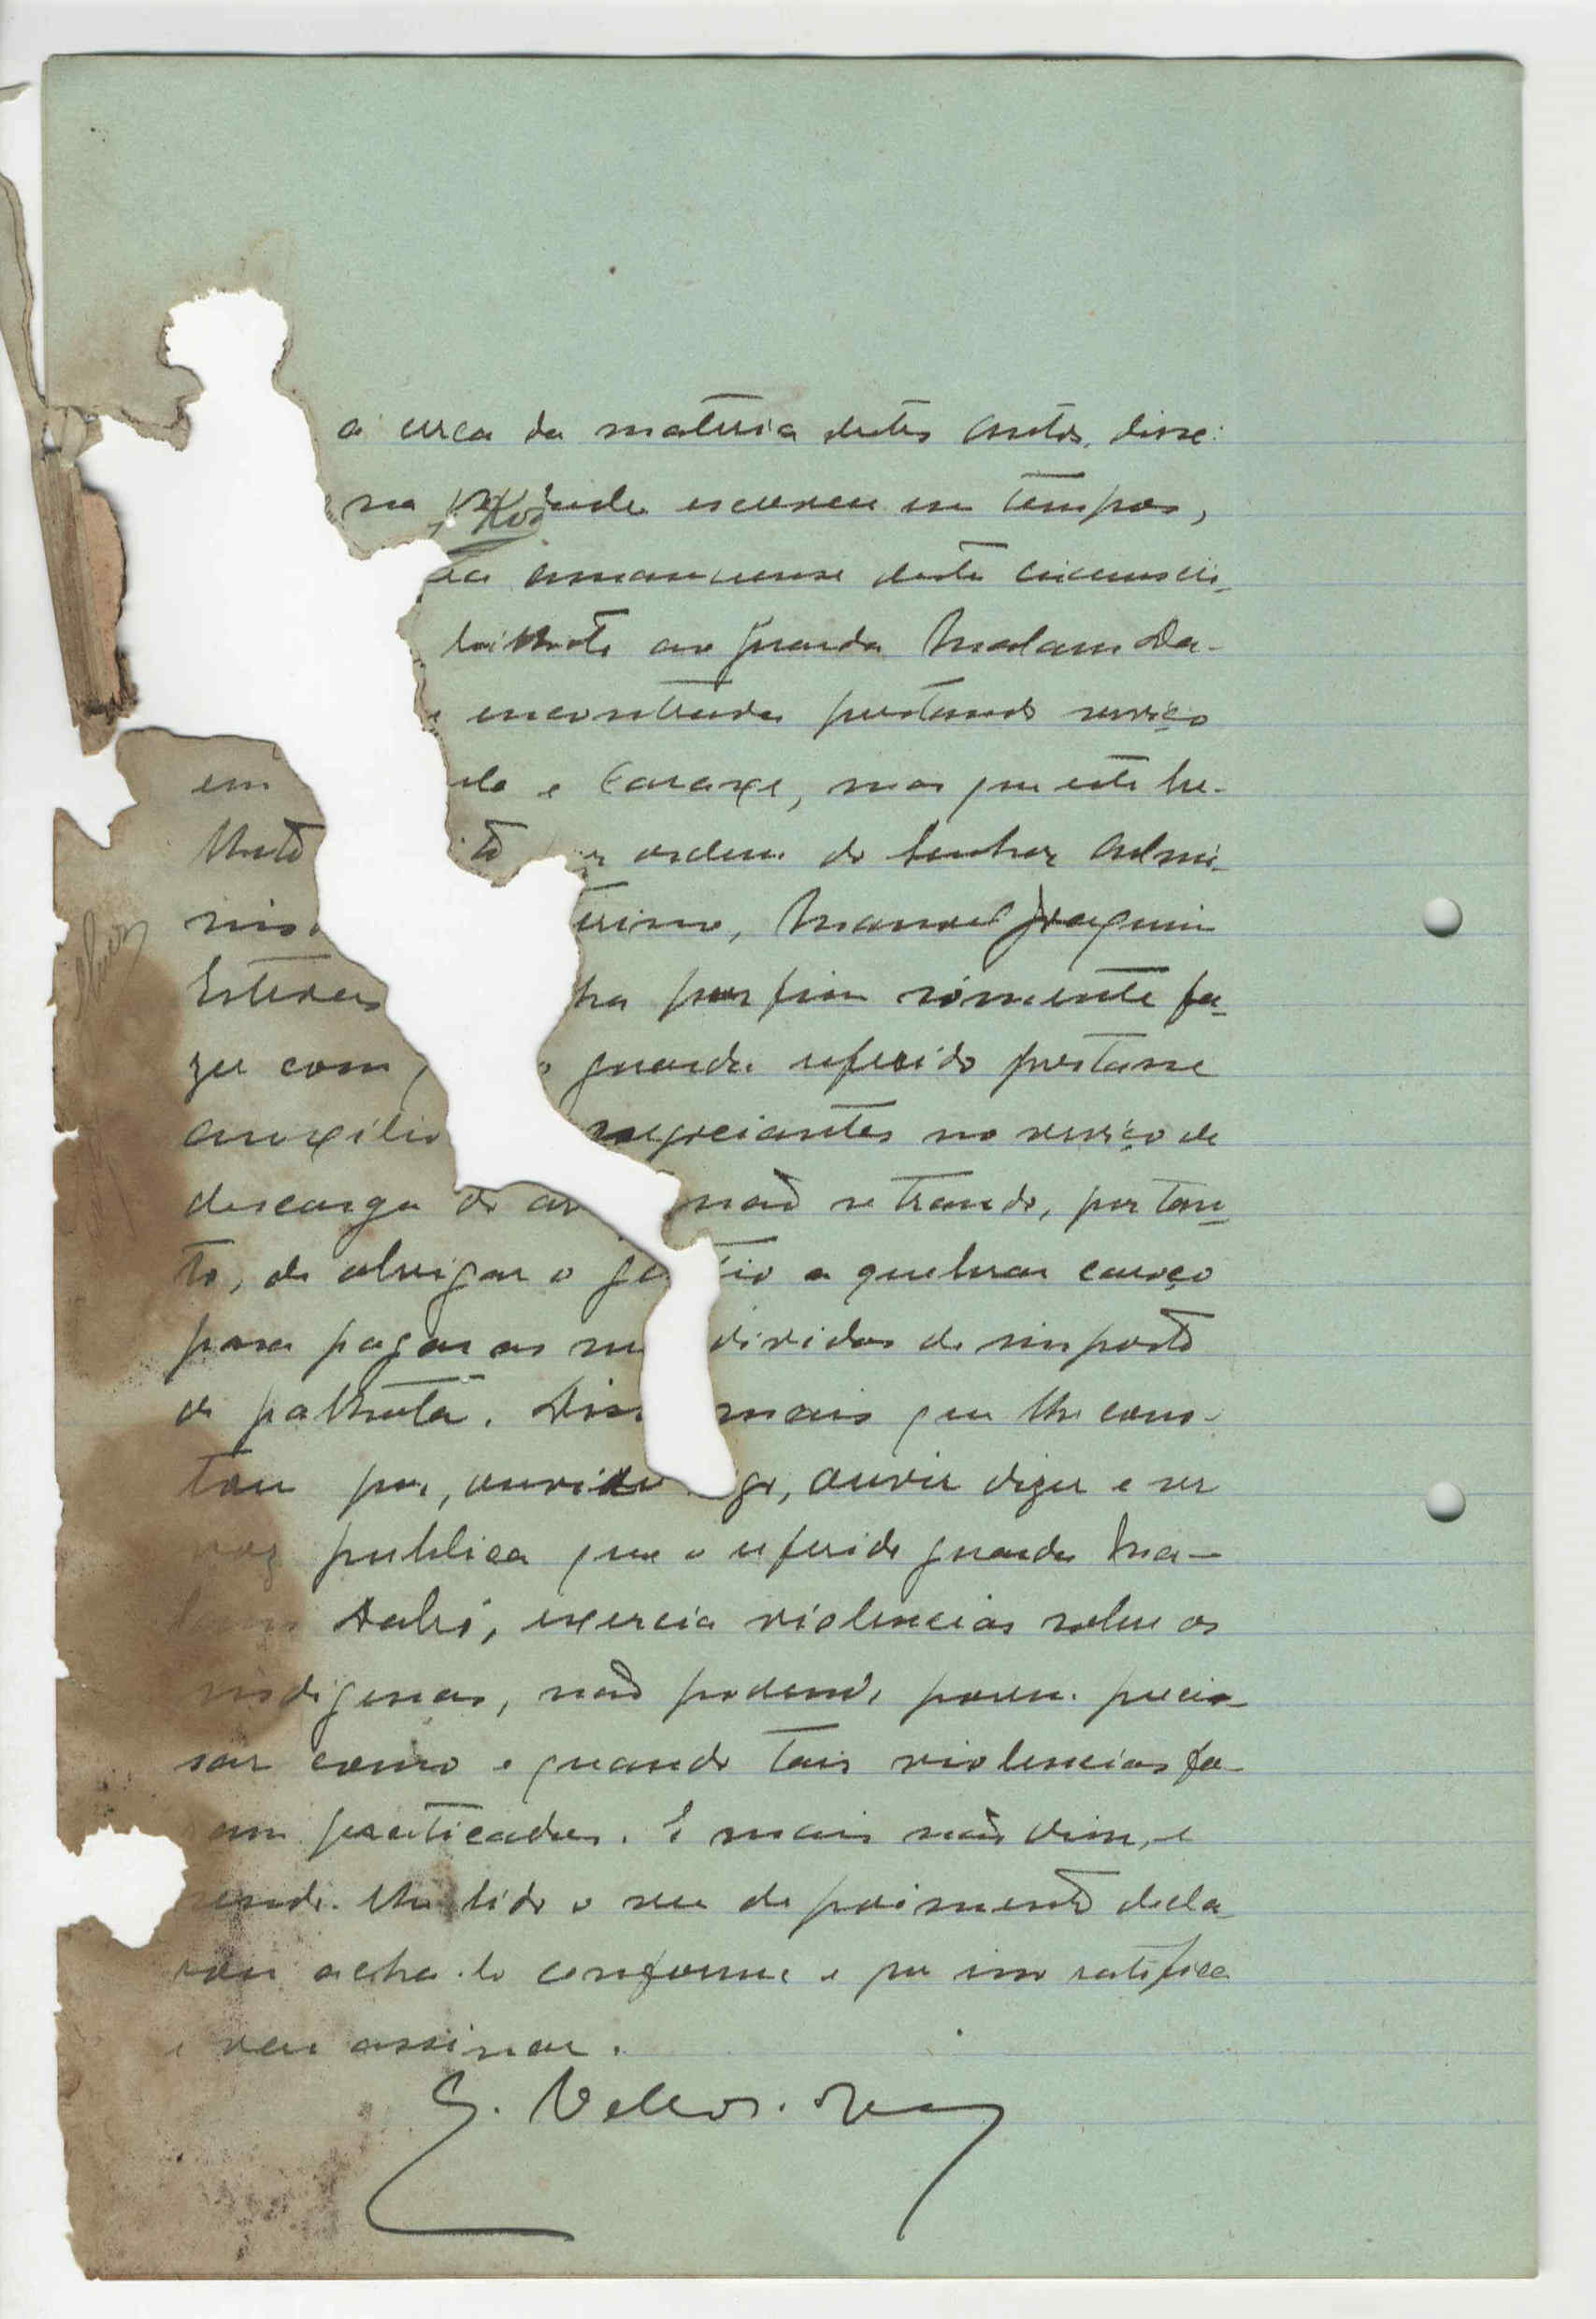 á cerca da materia destes autos, disse:
na verdade escreveu em tempos,
amanuense desta circunscri-
bilhete ao guarda Malam Da-
encontrada prestando serviço
em e Caraxe, mas que este bi-
lhete ordem do Senhor Admi-
nis terino, Manoel Joaquim
Esteves ha por fim sómente fa-
zer com guarda referido prestasse
auxilio negociantes no serviço de
descarga do ar não se trando, portan-
to, de obrigar o ge tio a quebrar caroço
para pagar as su dividas de imposto
de palhota. Diss mais que lhe cons-
tou por, ouvido go, ouvir dizer e ser
voz publica que o referido guarda Ma-
lam Dabó, exercia violencias sobre os
indigenas, não podendo porem preci-
sar como e quando tais violencias fo-
ram practicadas. E mais não disse, e
sendo-lhe lido o seu depoimento decla-
rou acha-lo conforme e por isso ratifica
e vai assinar.